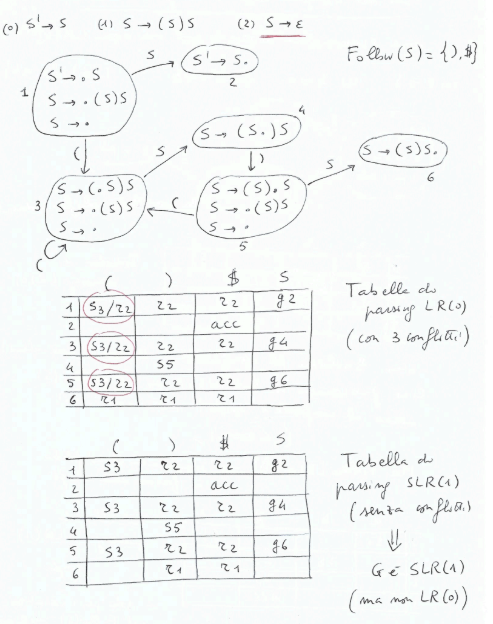 (0) S' → S (1) S → (S) S (2) S → ε
Follow(S) = { ), $}
1
S' → . S
S → . (S) S
S → .
S
S' → S.
2
(
3
S → (. S) S
S → . (S) S
S → .
(
S
4
S → (S.) S
)
5
S → (S). S
S → . (S) S
S → .
(
S
S → (S) S.
6
( ) $ S
1 S3/r2 r2 r2 g2
2 acc
3 S3/r2 r2 r2 g4
4 S5
5 S3/r2 r2 r2 g6
6 r1 r1 r1
Tabella di
parsing LR(0)
(con 3 conflitti)
( ) $ S
1 S3 r2 r2 g2
2 acc
3 S3 r2 r2 g4
4 S5
5 S3 r2 r2 g6
6 r1 r1
Tabella di
parsing SLR(1)
(senza conflitti)
⇓
G è SLR(1)
(ma non LR(0))